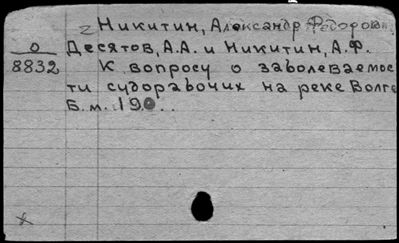 2 Никитин, Александр Федорович
О Десятов, А.А. и Никитин, А.Ф.
8832 К вопросу о заболеваемос
ти судорабочих на реке Волге
Б.м. 190...